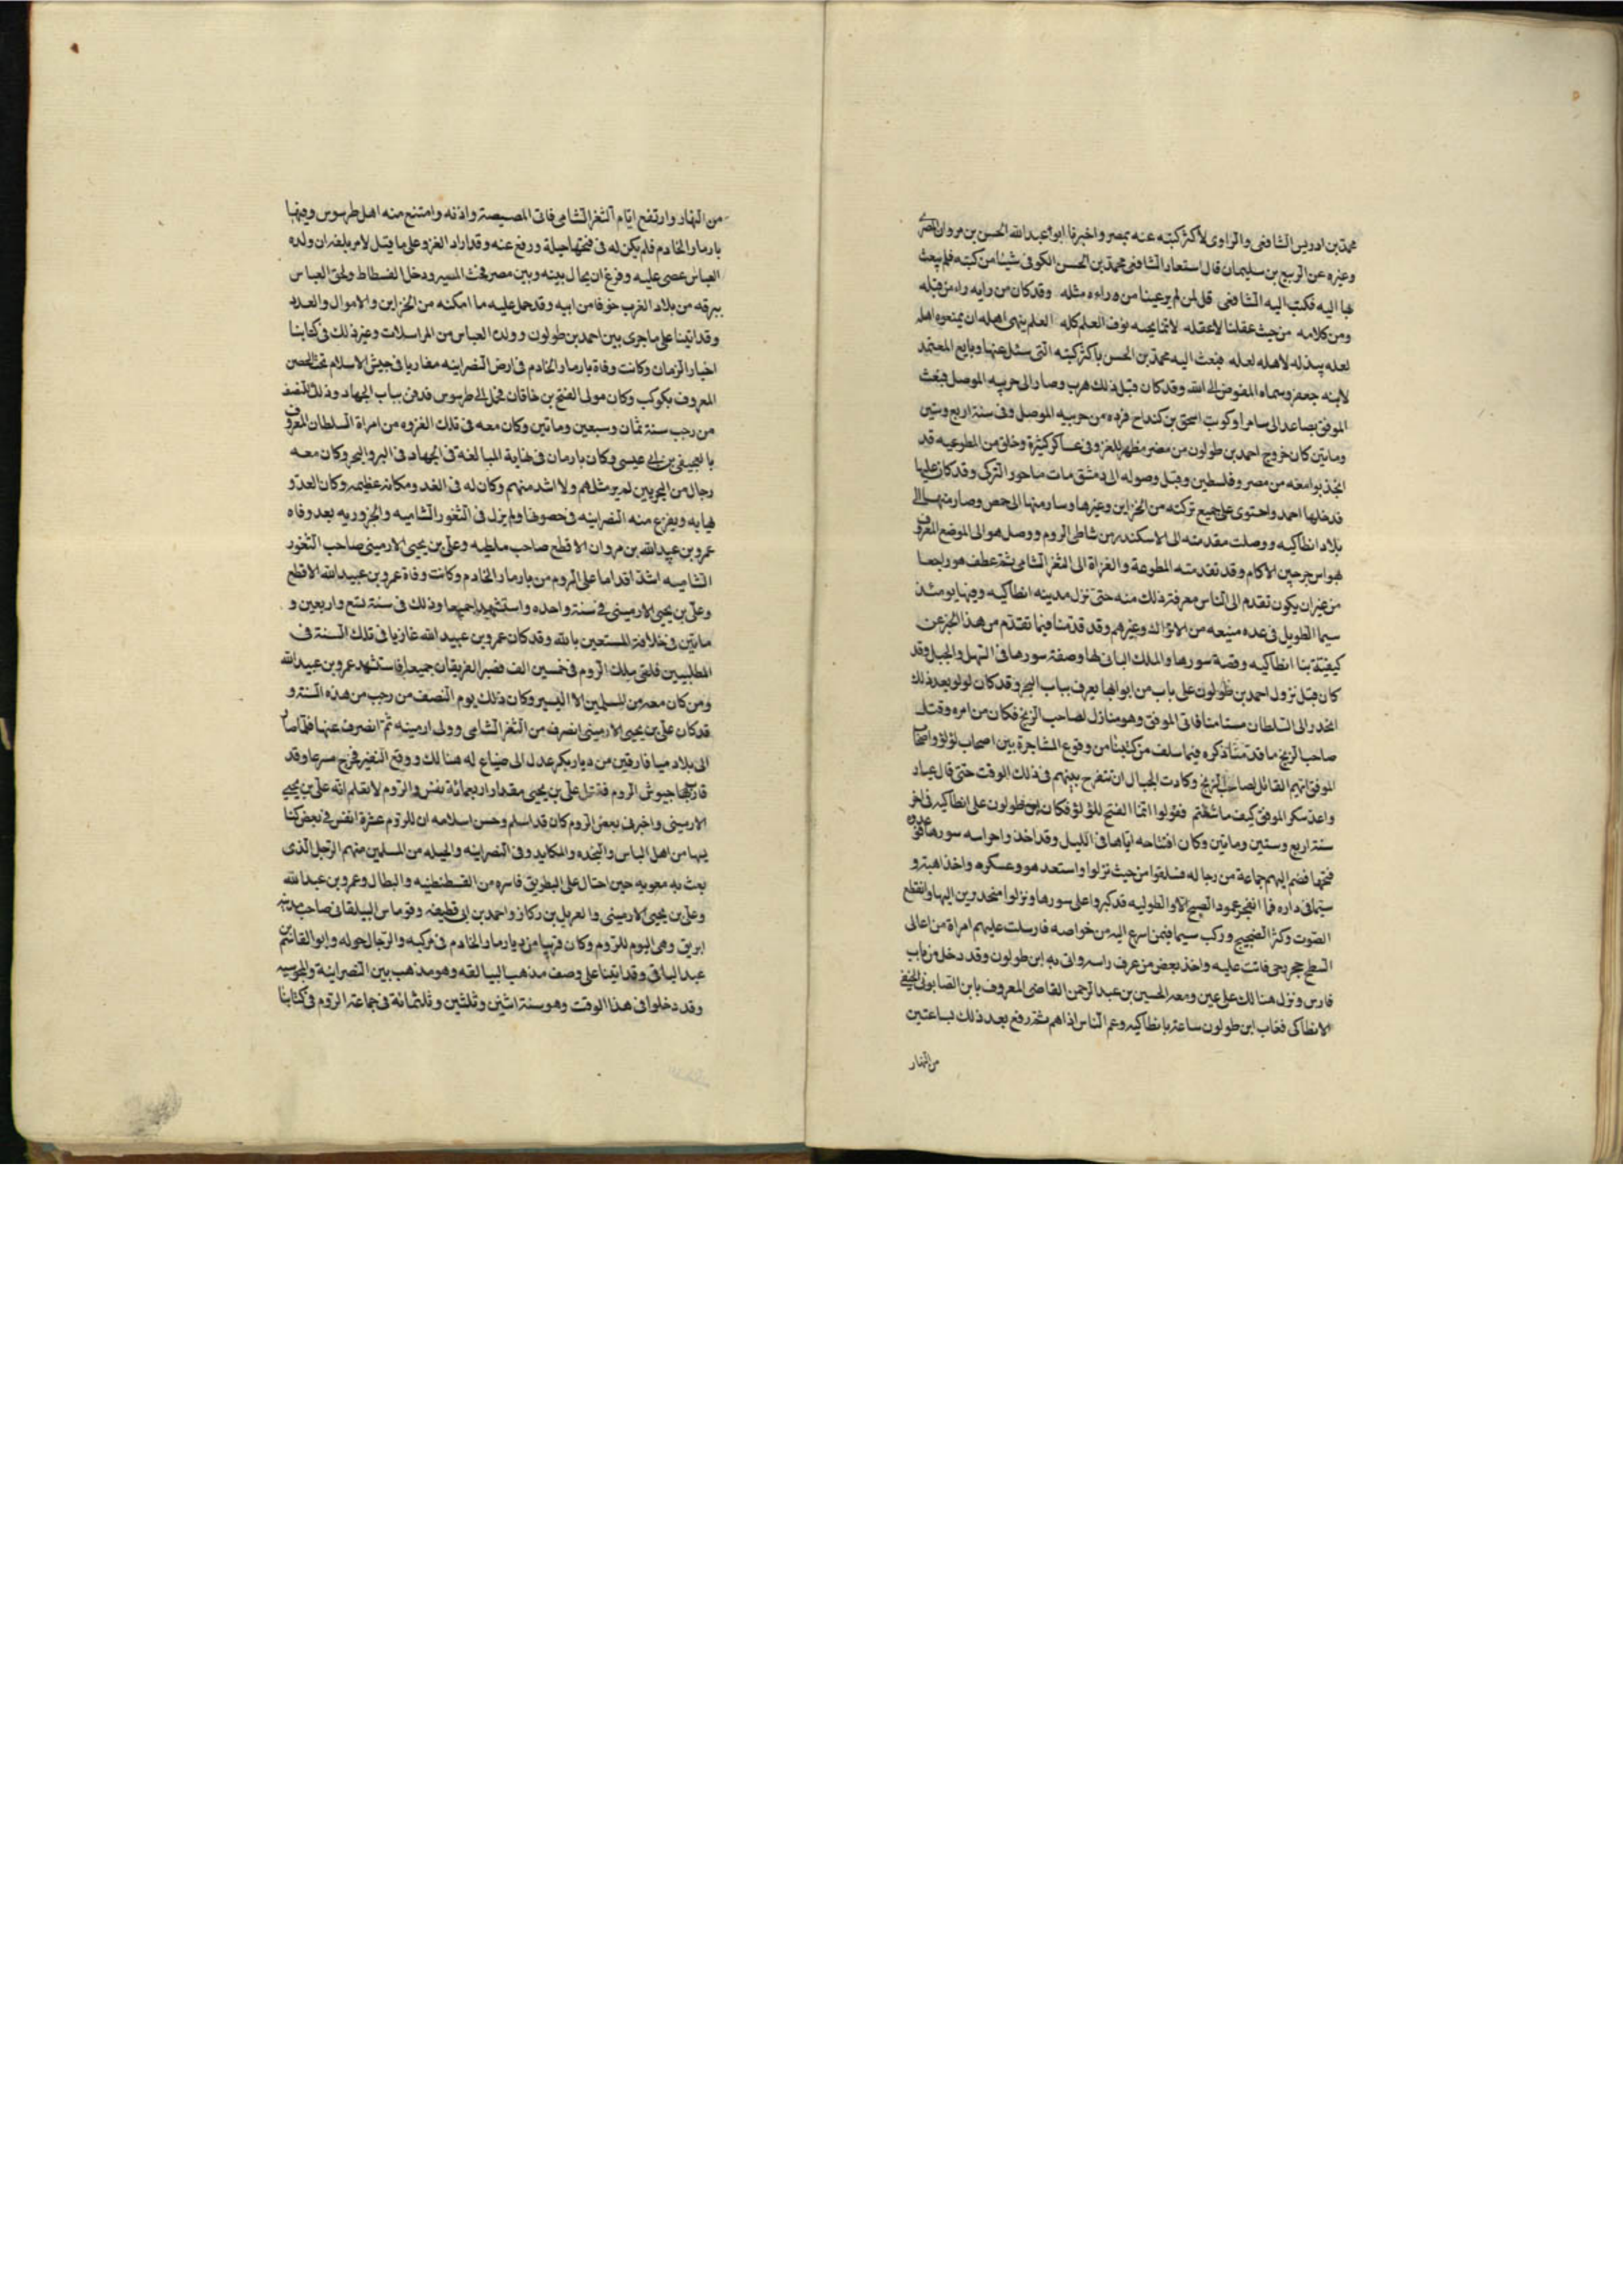 محمد بن ادريس الشافعى والراوى لأكثر كتبه عنه بمصر واخبرنا ابو عبدالله الحسن بن مروان المصرى
وغيره عن الربيع بن سليمان قال استعار الشافعى محمد بن الحسن الكوفى شيئا من كتبه فلم يبعث
بها اليه فكتب اليه الشافعى قل لمن لم يرعينا من وراءه مثله وقد كان من رايه راء من قبله
ومن كلامه من حيث عقلنا لاعقله لانما يجنه فوق العلم كله العلم ينهى اهله ان يمنعوه اهله
لعله يبذله لاهله لعله فبعث اليه محمد بن الحسن باكثر كتبه التى سئل عنها وبايع المعتمد
لابنه جعفر وسماه المفوض الى الله وقد كان قبل ذلك هرب وصار الى حربيه الموصل فبعث
الموفق بصاعد الى سامرا وكوتب اسحق بن كنداح فرده من حربيه الموصل وفى سنة اربع وستين
وماتين كان خروج احمد بن طولون من مصر مظهر للغزو فى عساكر كثيرة وخلق من المطوعيه قد
انجذبوا معه من مصر وفلسطين وقبل وصوله الى دمشق مات ماحور التركى وقد كان عليها
فدخلها احمد واحتوى على جميع تركته من الخزاين وغيرها وسار منها الى حمص وصار منها الى
بلاد انطاكيه ووصلت مقدمته الى الاسكندريه من شاطى الروم ووصل هو الى الموضع المعروف
بهواس جرجين الاكام وقد تقدمته المطوعة والغزاة الى الثغر الشامى ثم عطف هو راجعا
من غير ان يكون تقدم الى الناس معرفة ذلك منه حتى نزل مدينه انطاكيه وفيها يومئذ
سيما الطويل فى عده منيعه من الاتراك وغيرهم وقد قدمنا فيما تقدم من هذا الخبر عن
كيفية بنا انطاكيه وقصة سورها والملك البانى لها وصفة سورها فى السهل والجبل وقد
كان قبل نزول احمد بن طولون على باب من ابوابها يعرف بباب البحر وقد كان لولو بعد ذلك
انحدر الى السلطان مستامنا فاتى الموفق وهو منازل لصاحب الزنج فكان من امره وقتل
صاحب الزنج ما قدمنا ذكره فيما سلف من كتبنا من وقوع المشاجرة بين اصحاب لولو واصحاب
الموفق ايهم القاتل لصاحب الزنج وكادت الجبال ان تنفرج بينهم فى ذلك الوقت حتى قال عباد
واعد سكر الموفق كيف ما شئتم فقولوا انما الفتح للؤلؤ فكان ابن طولون على انطاكيه فى اخر
سنة اربع وستين وماتين وكان افتتاحه اياها فى الليل وقد اخذ واحراسه سورها فوق
فتحها فضم اليهم جماعة من رجاله فتسلقوا من حيث نزلوا واستعد هو وعسكره واخذ اهبته و
سيما فى داره فما انفجر عمود الصبح الا والطوليه قد كبروا على سورها ونزلوا منحدرين اليها وانقطع
الصوت وكثر الضجيج وركب سيما فيمن اسرع اليه من خواصه فارسلت عليهم امراة من اعالى
السطح حجر رحى فاتت عليه واخذ بعض من عرف راسه واتى به ابن طولون وقد دخل من باب
فارس ونزل هنالك على عين ومعه الحسين بن عبد الرحمن القاضى المعروف بابن الصابونى الحنفى
الانطاكى فغاب ابن طولون ساعة بانطاكيه وعم الناس اذاهم ثم رفع بعد ذلك بساعتين
من النهار
من النهار وارتفع ايام الثغر الشامى فاتى المصيصة واذنه وامتنع منه اهل طرسوس وفيها
يارمار الخادم فلم يكن له فى فتحها حيلة ورفع عنه وقد اراد الغزو على ما قيل لامر بلغه ان ولده
العباس عصى عليه وفزع ان يحال بينه وبين مصر فحث المسير ودخل الفسطاط ولحق العباس
ببرقه من بلاد الغرب خوفا من ابيه وقد حمل عليه ما امكنه من الخزاين والاموال والعدد
وقد اتينا على ما جرى بين احمد بن طولون وولده العباس من المراسلات وغير ذلك فى كتابنا
اخبار الزمان وكانت وفاة يارمار الخادم فى ارض النصرانيه مغاريا فى جيش الاسلام تحت الحصن
المعروف بكوكب وكان مولى الفتح بن خاقان فحمل الى طرسوس فدفن بباب الجهاد وذلك النصف
من رجب سنة ثمان وسبعين وماتين وكان معه فى تلك الغزوه من امراة السلطان المعروف
بالعجيفى بن ابى عيسى وكان يارمان فى نهاية المبالغة فى الجهاد فى البر والبحر وكان معه
رجال من البحريين لم ير مثلهم ولا اشد منهم وكان له فى الغد ومكانة عظيمه وكان العدو
يهابه ويفزع منه النصرانيه فى حصونها ولم يزل فى الثغور الشاميه والجزوريه بعد وفاه
عمرو بن عبدالله بن مروان الاقطع صاحب ملطيه وعلى بن يحيى الارمينى صاحب الثغور
الشاميه اشد اقداما على الروم من يارمار الخادم وكانت وفاة عمرو بن عبيدالله الاقطع
وعلى بن يحيى الارمينى فى سنة واحده واستشهدا جميعا وذلك فى سنة تسع واربعين و
ماتين فى خلافة المستعين بالله وقد كان عمرو بن عبيدالله غازيا فى تلك السنة فى
المطلبيين فلقى ملك الروم فى خمسين الف فصبر الفريقان جميعا فاستشهد عمرو بن عبيدالله
ومن كان معه من المسلمين الا اليسير وكان ذلك يوم النصف من رجب من هذه السنة و
قد كان على بن يحيى الارمينى انصرف من الثغر الشامى وولى ارمينيه ثم انصرف عنها فلما صار
الى بلاد ميافارقين من ديار بكر عدل الى ضياع له هنالك ووقع النفير فخرج مسرعا وقد
قاربها جيوش الروم فقتل على بن يحيى مقدار اربعمائة نفس والروم لا تعلم انه على بن يحيى
الارمينى واخبرنى بعض الروم كان قد اسلم وحسن اسلامه ان للروم عشرة انفس فى بعض كنا
يسها من اهل الباس والنجده والمكايد وفى النصرانيه والحيله من المسلمين منهم الرجل الذى
بعث به معويه حين احتال على البطريق فاسره من القسطنطنيه والبطال وعمرو بن عبدالله
وعلى بن يحيى الارمينى والعريل بن ركاز واحمد بن ابى قطيفه وقوماس البيلقانى صاحب مدينة
ابريق وهى اليوم للروم وكان قريبا من ديارمار الخادم فى مركبه والرجال حوله وابو القاسم بن
عبد الباقى وقد اتينا على وصف مذهب البيالقه وهو مذهب بين النصرانية والمجوسيه
وقد دخلوا فى هذا الوقت وهو سنة اثنين وثلثين وثلثمائة فى جماعة الروم فى كتابنا